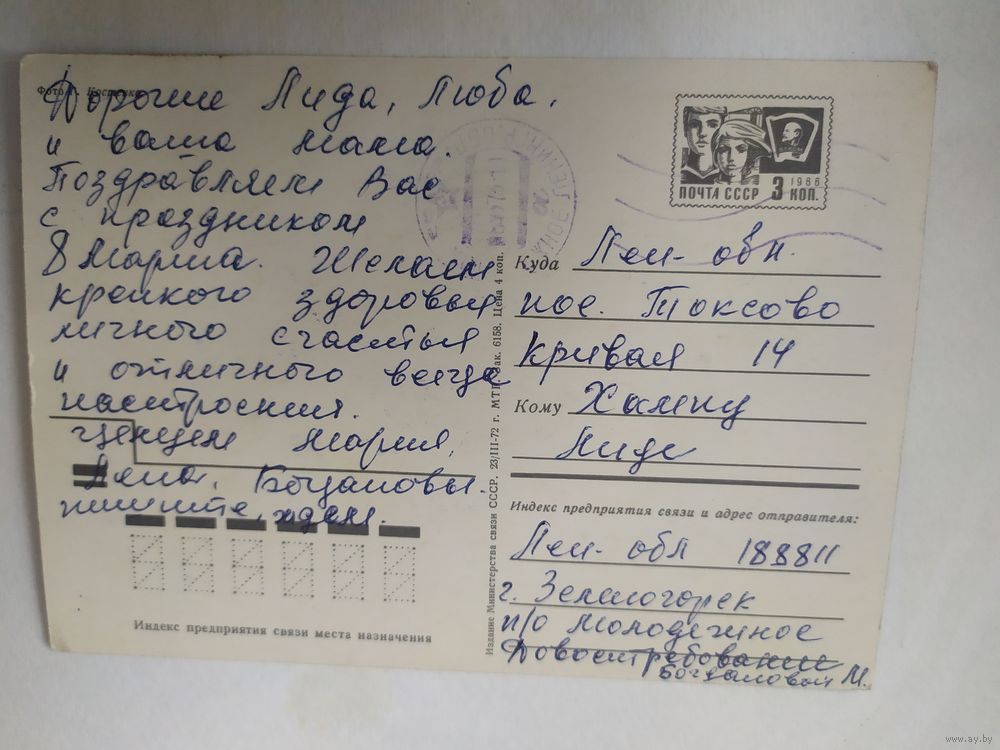 Фото
Дорогие Лида, Люба,
и ваша мама.
Поздравляем Вас
с праздником
8 Марта. Желаем
крепкого здоровья
личного счастья
и отличного всегда
настроения.
целуем Мария,
Богдановы.
пишите, ждем.
Индекс предприятия связи места назначения
Издание Министерства связи СССР. 23/III-72 г. МТГ Зак. 6158. Цена 4 коп.
ПОЧТА СССР 3 КОП. 1966
Куда Лен- обл.
пос. Токсово
Кривая 14
Кому
Лиде
Индекс предприятия связи и адрес отправителя:
Лен- обл 188811
г. Зеленогорск
п/о Молодежное
Довостребования
Богдановой М.
www.ay.by